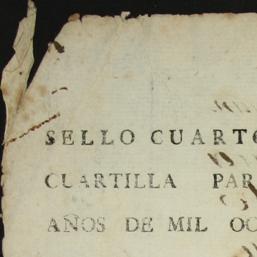 SELLO CUARTO
CUARTILLA PAR
AÑOS DE MIL OC